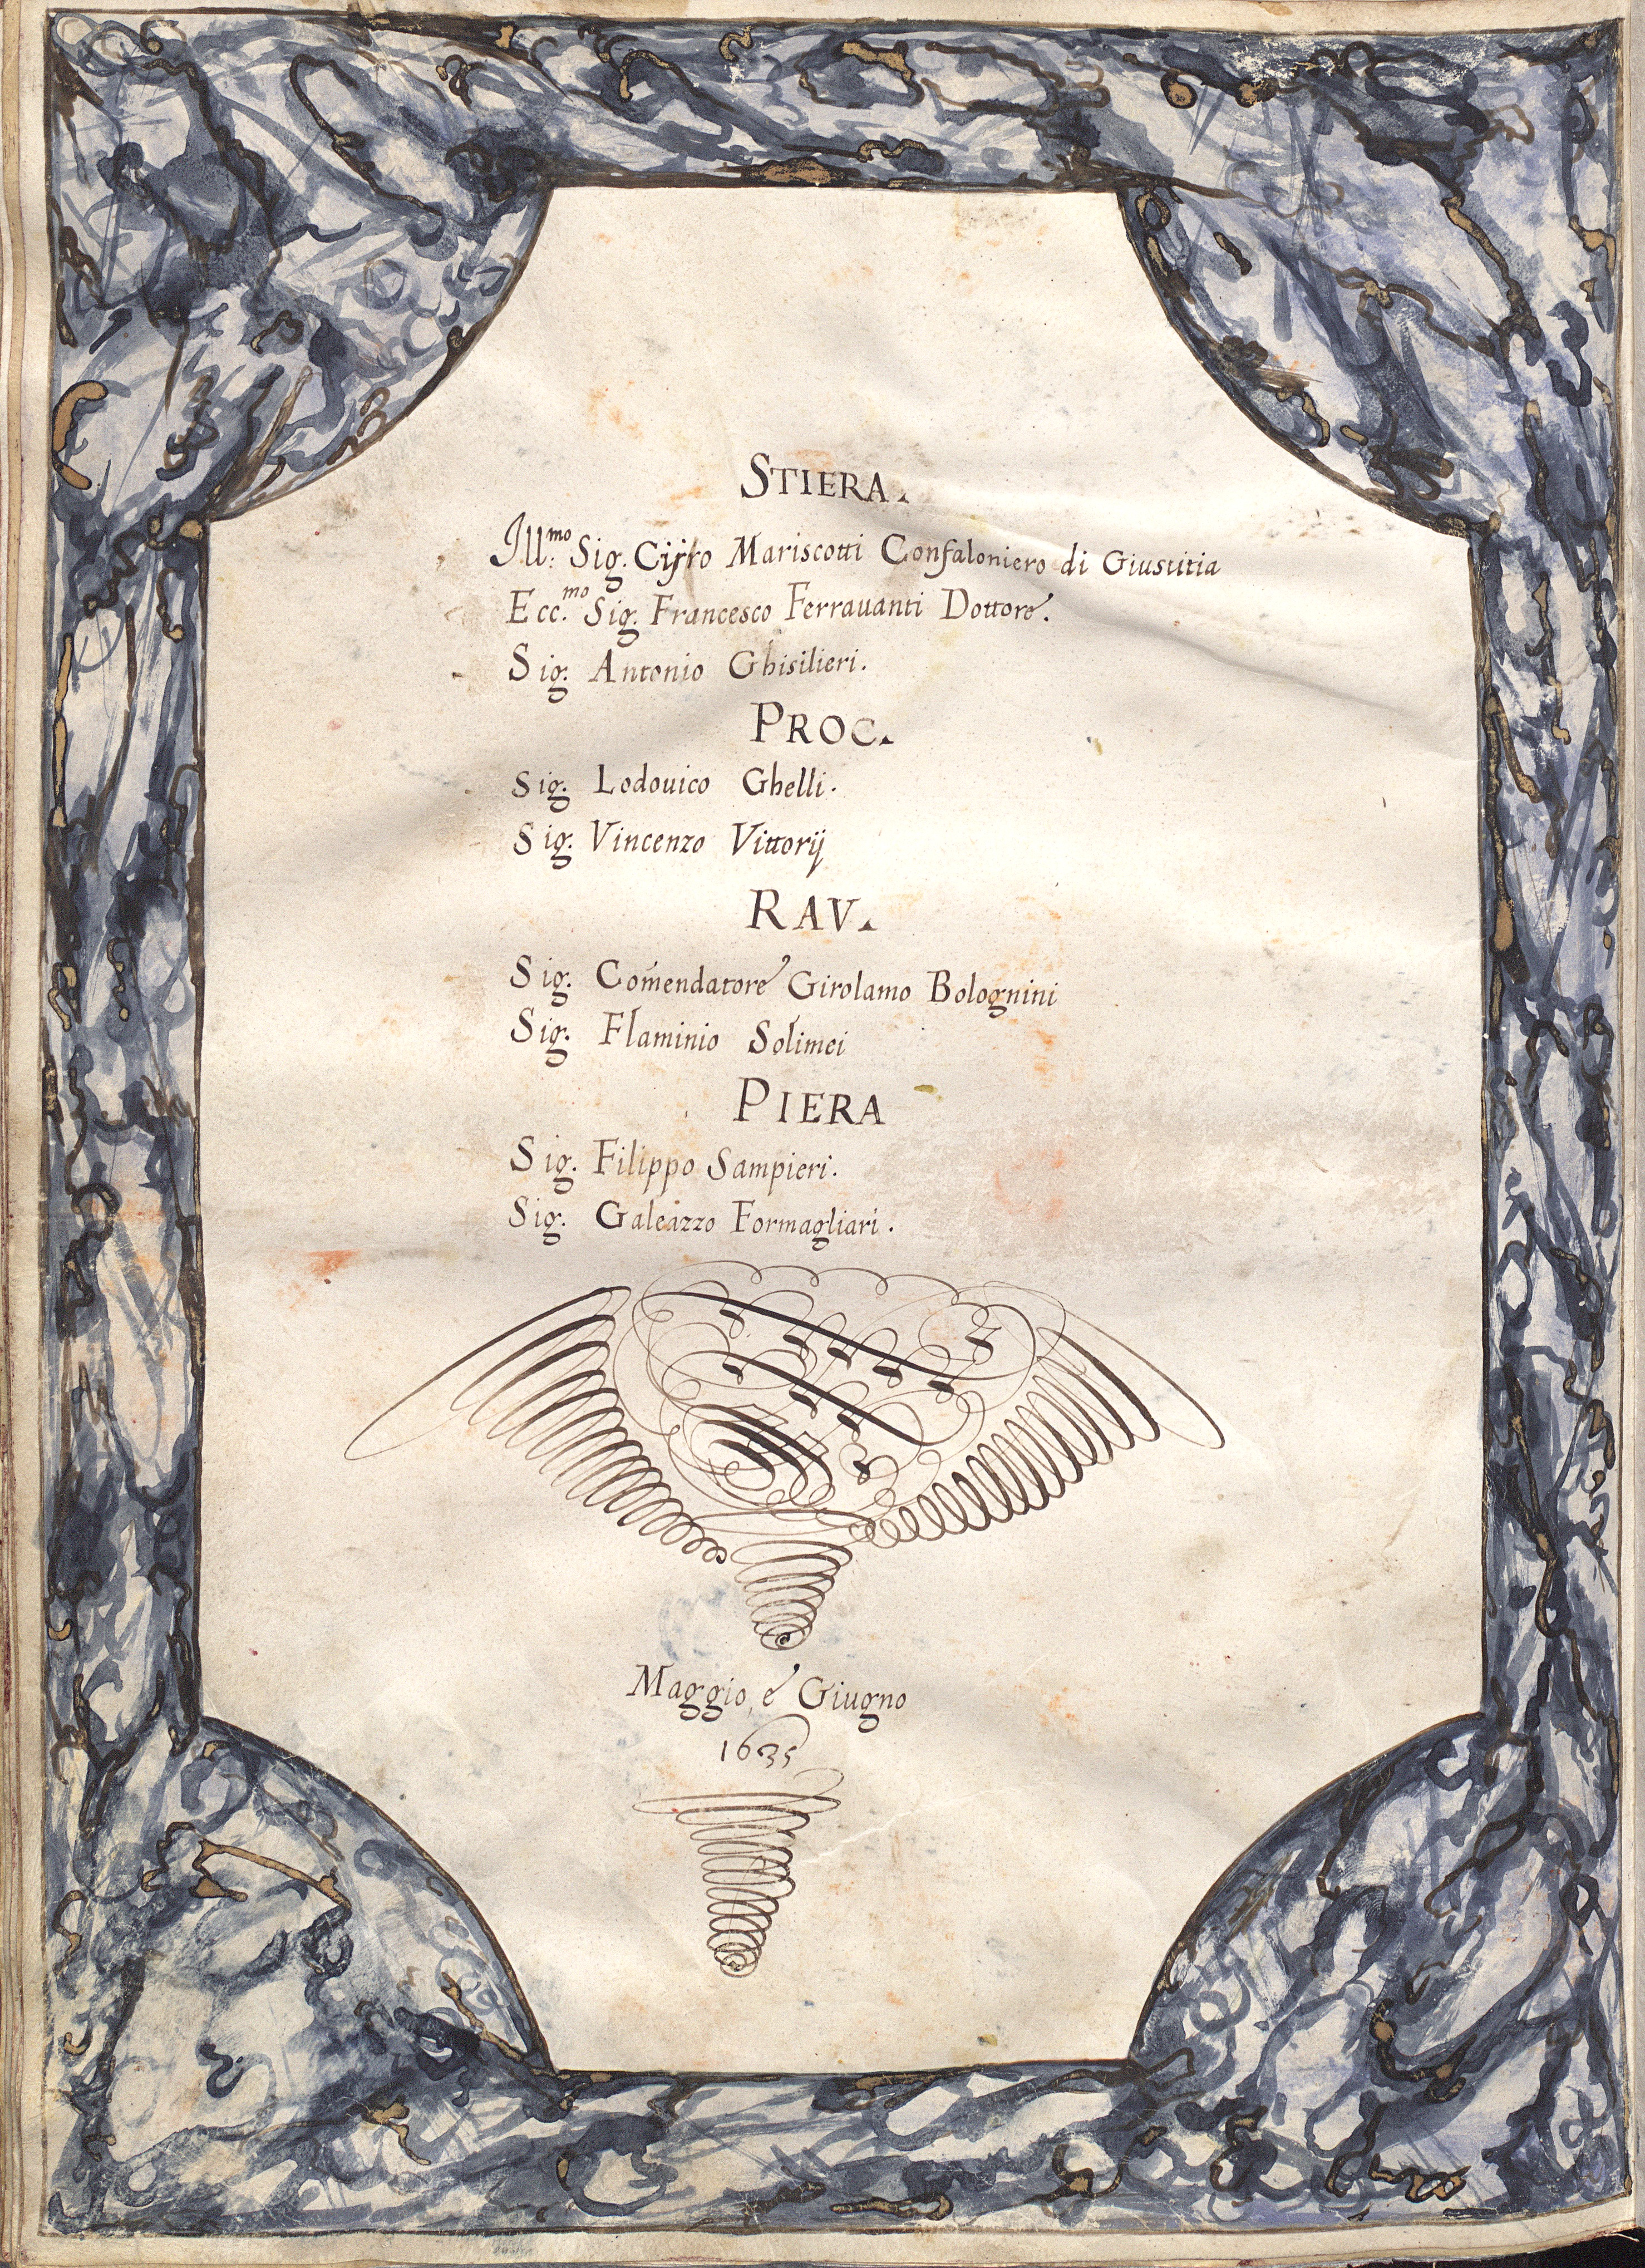 STIERA.
Ill.mo Sig. Cirro Mariscotti Confaloniero di Giustitia
Ecc.mo Sig. Francesco Ferrauanti Dottore.
Sig. Antonio Ghisilieri.
PROC.
Sig. Lodouico Ghelli.
Sig. Vincenzo Vittorij
RAV.
Sig. Com̃endatore Girolamo Bolognini
Sig. Flaminio Solimei
PIERA
Sig. Filippo Sampieri.
Sig. Galeazzo Formagliari.
Maggio, e Giugno
1635